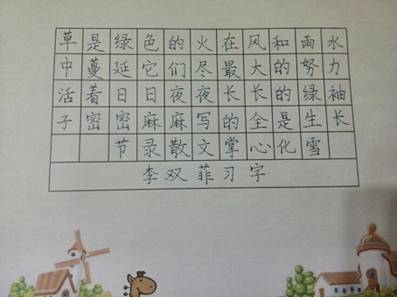 草是绿色的火在风和雨水
中蔓延它们尽最大的努力
活着日日夜夜长长的绿袖
子密密麻麻写的全是生长
节录散文掌心化雪
李双菲习字